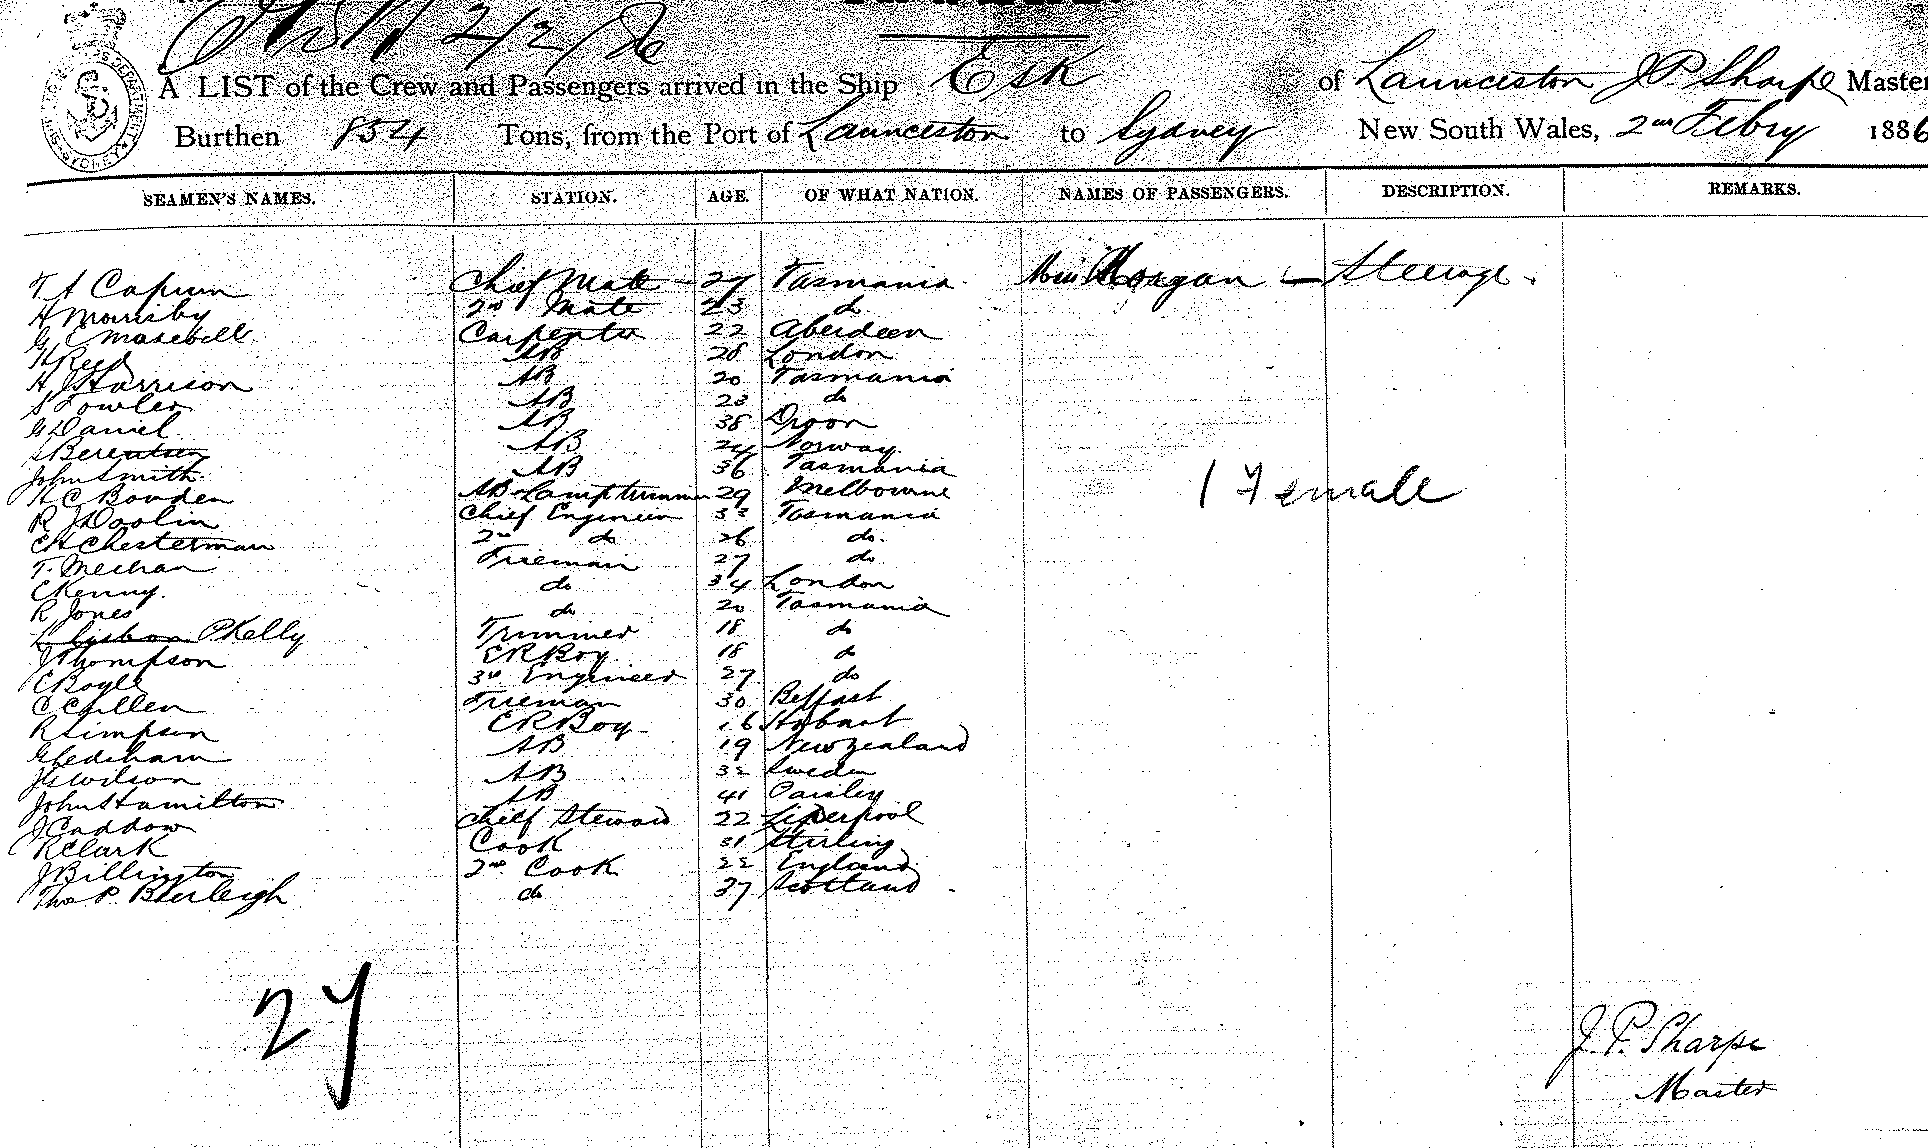 A LIST of the Crew and Passengers arrived in the Ship Esk of Launceston J P Sharpe Master
Burthen 854 Tons, from the Port of Launceston to Sydney New South Wales, 2nd Febry 1886
SEAMEN'S NAMES. STATION. AGE. OF WHAT NATION. NAMES OF PASSENGERS. DESCRIPTION. REMARKS.
T A Capurn Chief Mate 27 Tasmania Morgan Steerage
A Morrisby 2nd Mate 23 do
G Carpenter 22 Aberdeen
H Reed AB 28 London
A J Harrison AB 20 Tasmania
S Fowler AB 23 do
G Daniel AB 38
S Berentsen AB 24 Norway
John Smith AB 36 Tasmania
H C Bowden AB & Lamptrimmer 29 Melbourne
R J Doolin Chief Engineer 33 Tasmania
C H Chesterman 2nd do 26 do
T. Meehan Fireman 27 do
C Kenny. do 34 London
R Jones do 20 Tasmania
P Kelly Trimmer 18 do
J Thompson E R Boy 18 do
C Boyle 3rd Engineer 27 do
C Cullen Fireman 30 Belfast
R Simpson E R Boy 16 Hobart
G Ledsham AB 19 New Zealand
J G Wilson AB 32 Sweden
John S Hamilton AB 41 Paisley
J Caddow Chief Steward 22 Liverpool
R Clark Cook 31 Stirling
J Billington 2nd Cook 22 England
Thos P. Burleigh do 37 Scotland
1 Female
27
J. P. Sharpe
Master